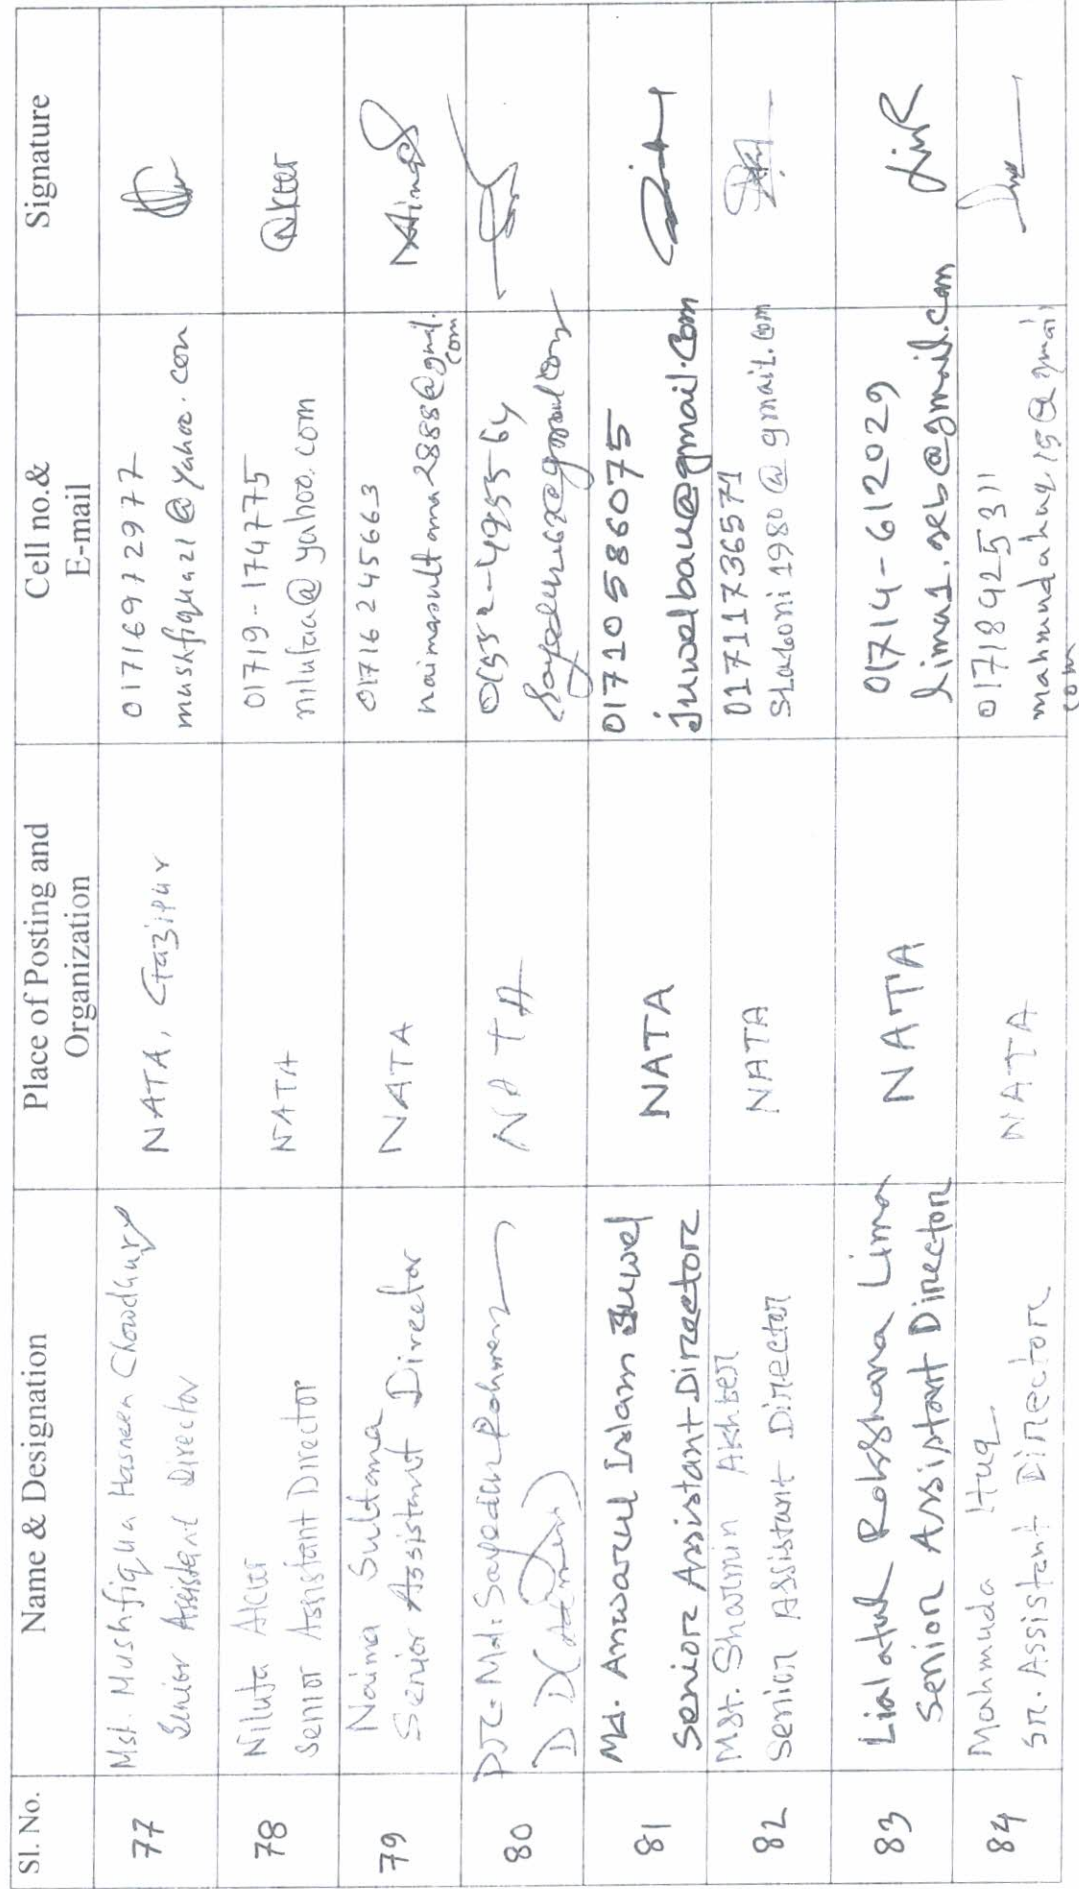 Sl. No.
Name & Designation
Place of Posting and
Organization
Cell no.&
E-mail
Signature
77
Mst. Mushfiqua Hasneen Chowdhury
Senior Assistant Director
NATA, Gazipur
01716972977
mushfiqua21@yahoo.com
78
Nilufa Akter
Senior Assistant Director
NATA
01719-174775
nilufaa@yahoo.com
Akter
79
Naima Sultana
Senior Assistant Director
NATA
01716245663
naimasultana2888@gmail.
com
Naima
80
Md: Sayedur Rahman
DD
NATA
81
Md. Anwarul Islam Juwel
Senior Assistant Director
NATA
01710586075
juwelbau@gmail.com
82
Mst. Sharmin Akhter
Senior Assistant Director
NATA
01711736571
Shaboni1980@gmail.com
83
Lialatuh Rokshana Lima
Senior Assistant Director
NATA
01714-612029
lima1.ses@gmail.com
84
Mahmuda Huq
Sr. Assistant Director
NATA
01718925311
mahmudahuq15@gmail
com